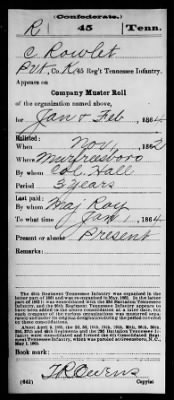 (Confederate.)
R 45 Tenn.
C Rowlet
Pvt, Co. K, 45 Reg't Tennessee Infantry.
Appears on
Company Muster Roll
of the organization named above,
for Jan & Feb, 1864
Enlisted:
When Nov, 1862
Where Murfreesboro
By whom Col. Hall
Period 3 years
Last paid:
By whom Maj Ray
To what time Jan 1, 1864
Present or absent Present
Remarks:
Book mark:
T R Owens
(642) Copyist